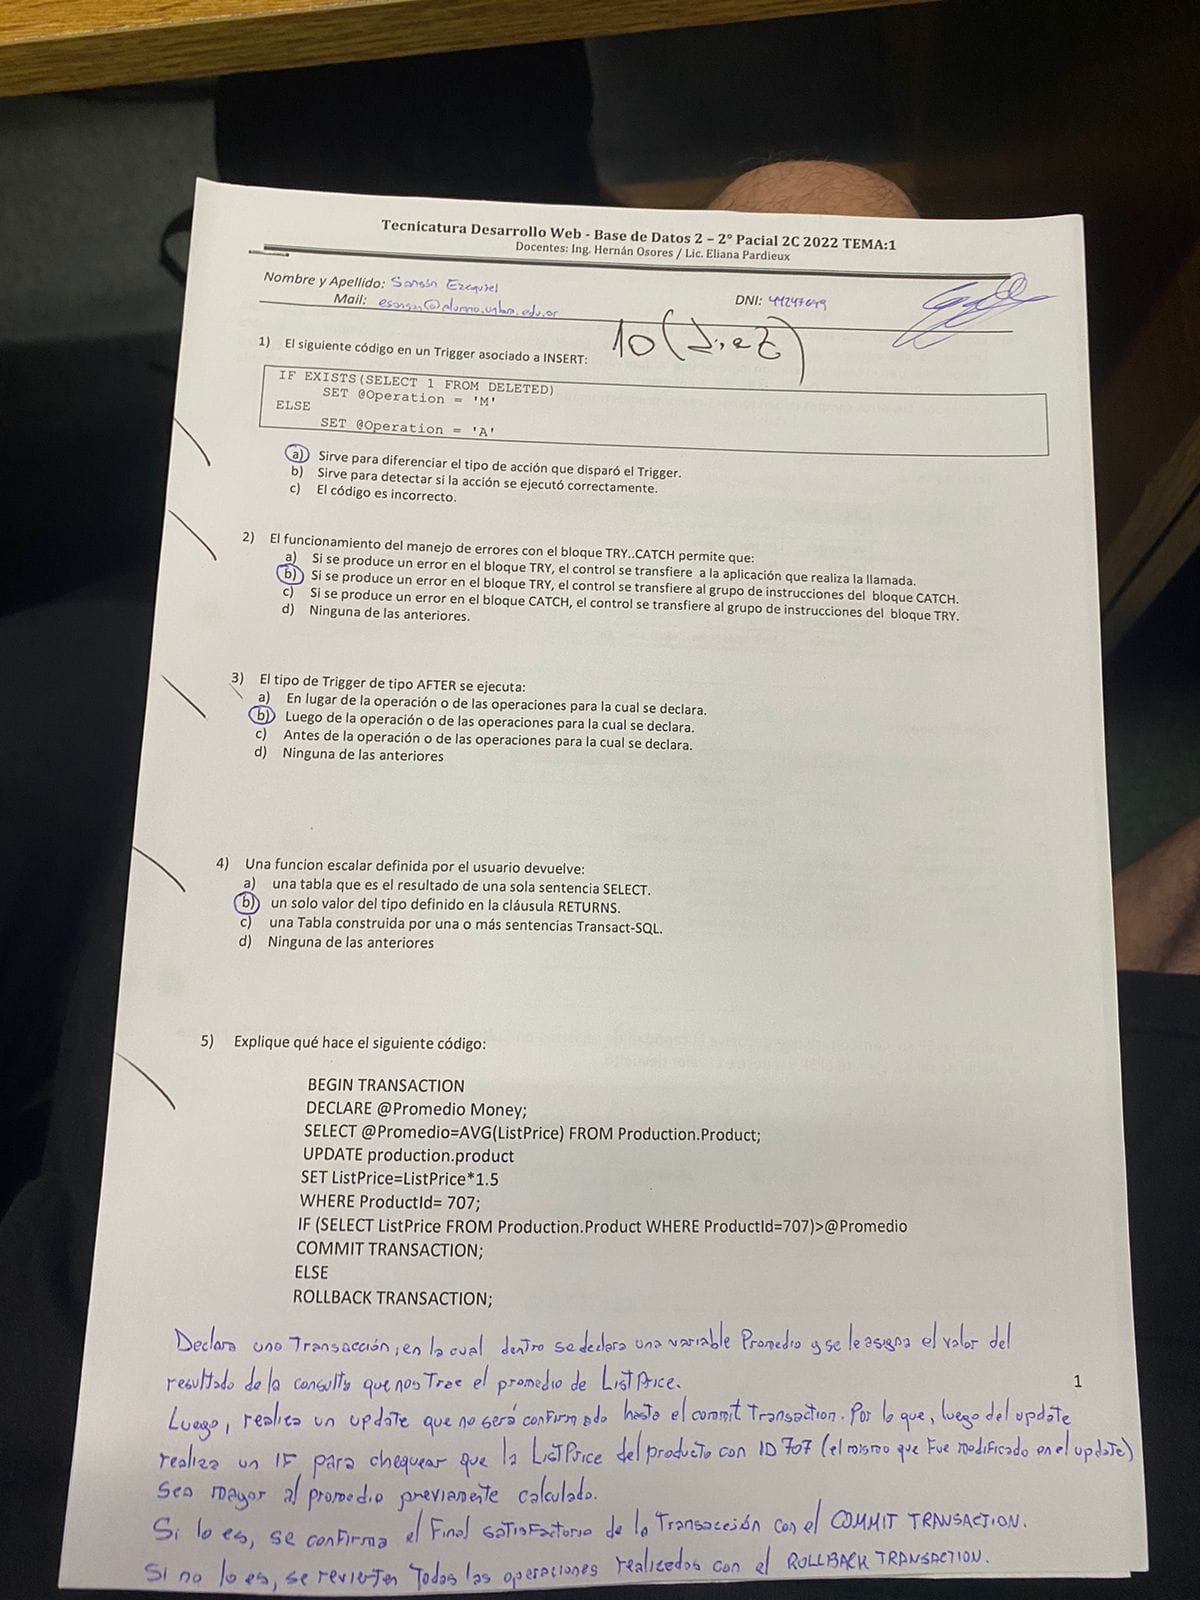 Tecnicatura Desarrollo Web - Base de Datos 2 – 2° Pacial 2C 2022 TEMA:1
Docentes: Ing. Hernán Osores / Lic. Eliana Pardieux
Nombre y Apellido: Ezequiel
DNI:
Mail:
10 (Diez)
1) El siguiente código en un Trigger asociado a INSERT:
IF EXISTS(SELECT 1 FROM DELETED)
SET @Operation = 'M'
ELSE
SET @Operation = 'A'
a) Sirve para diferenciar el tipo de acción que disparó el Trigger.
b) Sirve para detectar si la acción se ejecutó correctamente.
c) El código es incorrecto.
2) El funcionamiento del manejo de errores con el bloque TRY..CATCH permite que:
a) Si se produce un error en el bloque TRY, el control se transfiere a la aplicación que realiza la llamada.
b) Si se produce un error en el bloque TRY, el control se transfiere al grupo de instrucciones del bloque CATCH.
c) Si se produce un error en el bloque CATCH, el control se transfiere al grupo de instrucciones del bloque TRY.
d) Ninguna de las anteriores.
3) El tipo de Trigger de tipo AFTER se ejecuta:
a) En lugar de la operación o de las operaciones para la cual se declara.
b) Luego de la operación o de las operaciones para la cual se declara.
c) Antes de la operación o de las operaciones para la cual se declara.
d) Ninguna de las anteriores
4) Una funcion escalar definida por el usuario devuelve:
a) una tabla que es el resultado de una sola sentencia SELECT.
b) un solo valor del tipo definido en la cláusula RETURNS.
c) una Tabla construida por una o más sentencias Transact-SQL.
d) Ninguna de las anteriores
5) Explique qué hace el siguiente código:
BEGIN TRANSACTION
DECLARE @Promedio Money;
SELECT @Promedio=AVG(ListPrice) FROM Production.Product;
UPDATE production.product
SET ListPrice=ListPrice*1.5
WHERE ProductId= 707;
IF (SELECT ListPrice FROM Production.Product WHERE ProductId=707)>@Promedio
COMMIT TRANSACTION;
ELSE
ROLLBACK TRANSACTION;
Declara una Transacción, en la cual dentro se declara una variable Promedio y se le asigna el valor del
resultado de la consulta que nos Trae el promedio de ListPrice.
1
Luego, realiza un update que no será confirmado hasta el commit Transaction. Por lo que, luego del update
realiza un IF para chequear que la ListPrice del producto con ID 707 (el mismo que Fue modificado en el update)
Sea mayor al promedio previamente calculado.
Si lo es, se confirma el Final satisfactorio de la Transacción con el COMMIT TRANSACTION.
Si no lo es, se revierten Todas las operaciones realizadas con el ROLLBACK TRANSACTION.